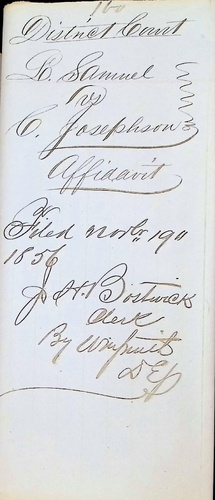 160
District Court
L. Samuel
vs
C. Josephson
Affidavit
Filed Novbr 19"
1856
J. H. Bostwick
Clerk
By Wm Smith
D C